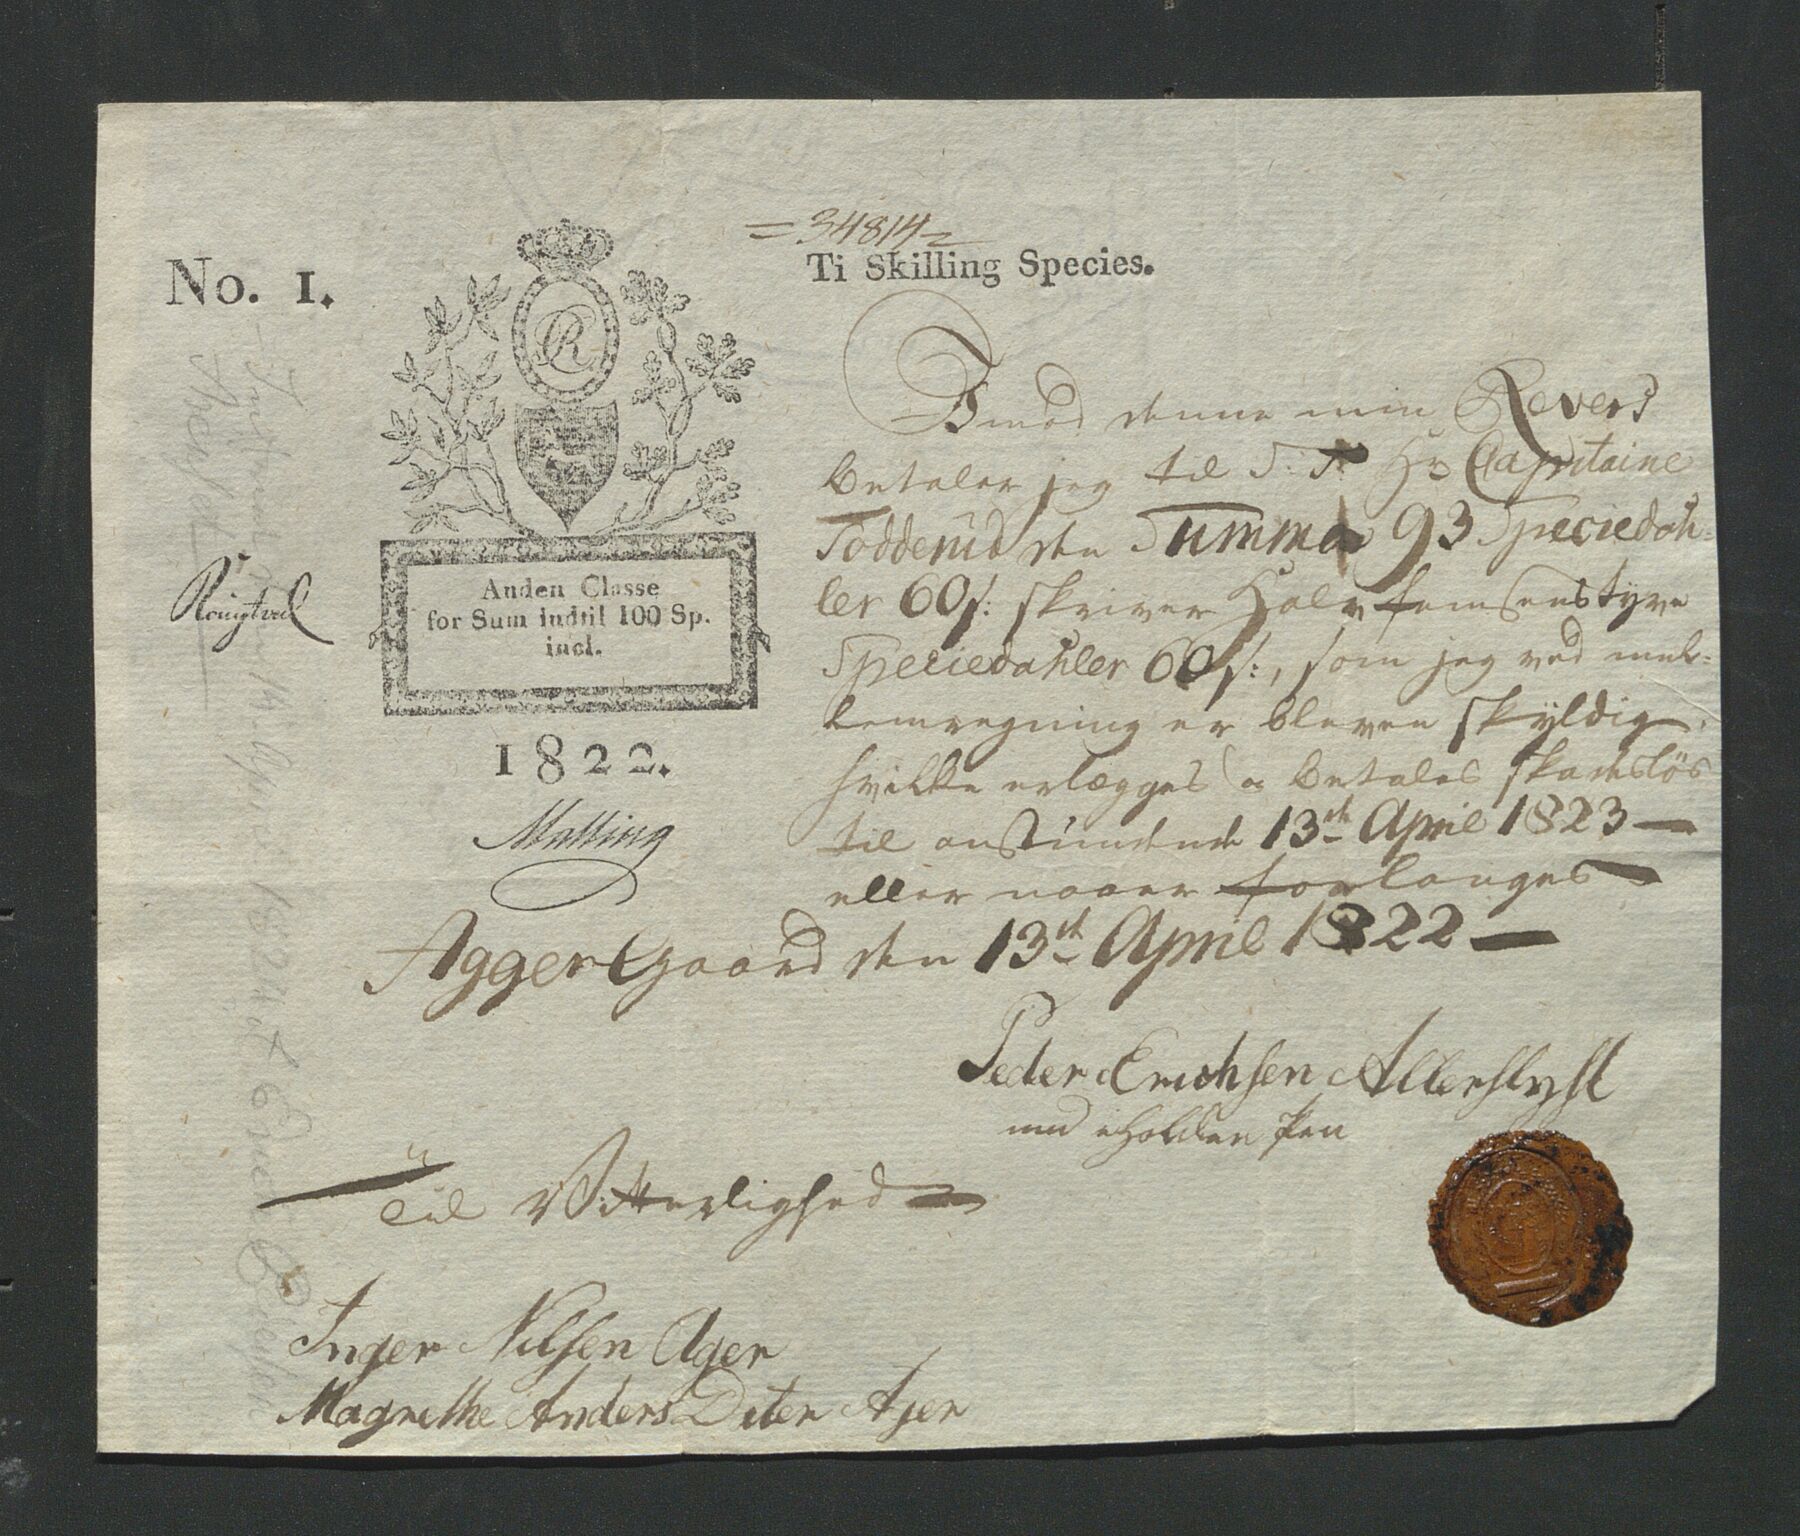 =34814=
No. 1.
Ti Skilling Species.
R
Anden Classe
for Sum indtil 100 Sp.
incl.
1822.
Matting
Imod denne min Revers
betaler jeg til S: T: Hr Capitaine
Todderud den Summa 93 Speciedah-
ler 60 s: skriver Halvfemsenstyve
Speciedahler 60 s:, som jeg ved mel-
lemregning er bleven skyldig,
hvilke erlægges o betales skadeslös
til anstundende 13de April 1823 —
eller naar forlanges —
Agger Gaard den 13de April 1822 —
Peder Erichsen Allerslyst
med eholden Pen
Til Vitterlighed
Inger Nilsen Ager
Magrethe Anders Deter Ager